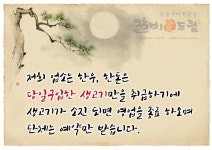 갈비본드림
저희 업소는 한우, 한돈은
당일구입한 생고기만을 취급하기에
생고기가 소진 되면 영업을 종료 하오며
단체는 예약만 받습니다.